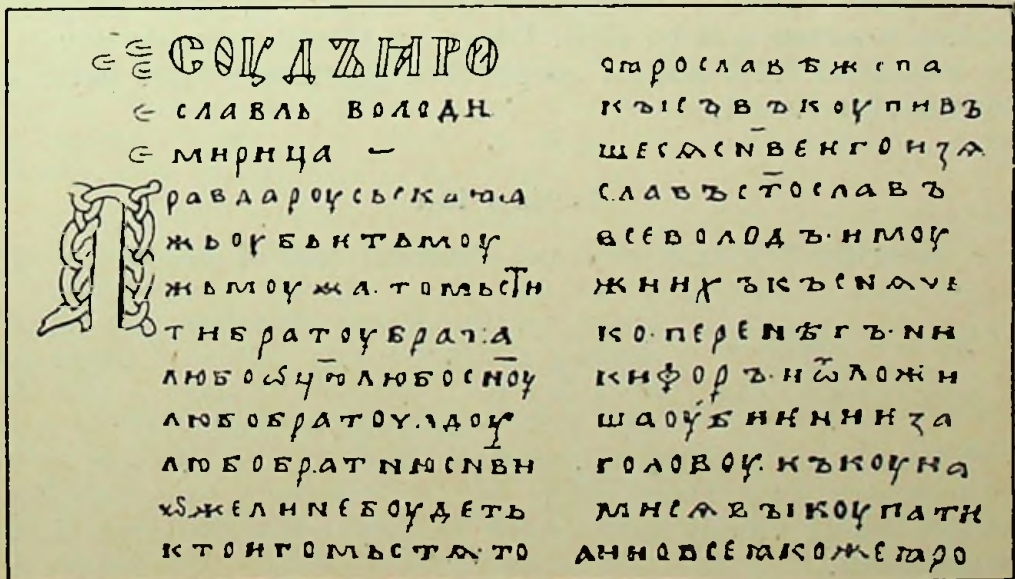 СОУДЪ ꙖРО
СЛАВЛЬ ВОЛОДИ
МИРИЦА —
ПРАВДАРОУСЬСКАꙖА
ЖЬОУБЬИТЬМОУ
ЖЬМОУЖА·ТОМЬСТИ
ТИБРАТОУБРАТА
ЛЮБООЦЮ҃ЛЮБОСН҃ОУ
ЛЮБОБРАТОУЧАДОУ
ЛЮБОБРАТНЮСНВИ
ЖЕЛИНЕБОУДЕТЬ
КТОИГОМЬСТѦТО
ОꙖРОСЛАВѢЖЕПА
КЪІСЪВЪКОУПИВЪ
ШЕСѦСН҃ВЕИГОИЗѦ
СЛАВЪСТ҃ОСЛАВЪ
ВСЕВОЛОДЪ·ИМОУ
ЖИИХЪКЪСНѦЧЕ
КО·ПЕРЕНѢГЪ·НИ
КИФОРЪ·ИѾЛОЖИ
ШАОУБИЕНИИЗА
ГОЛОВОУ·НЪКОУНА
МИСѦВЪІКОУПАТИ
АИНОВСЕꙖКОЖЕꙖРО